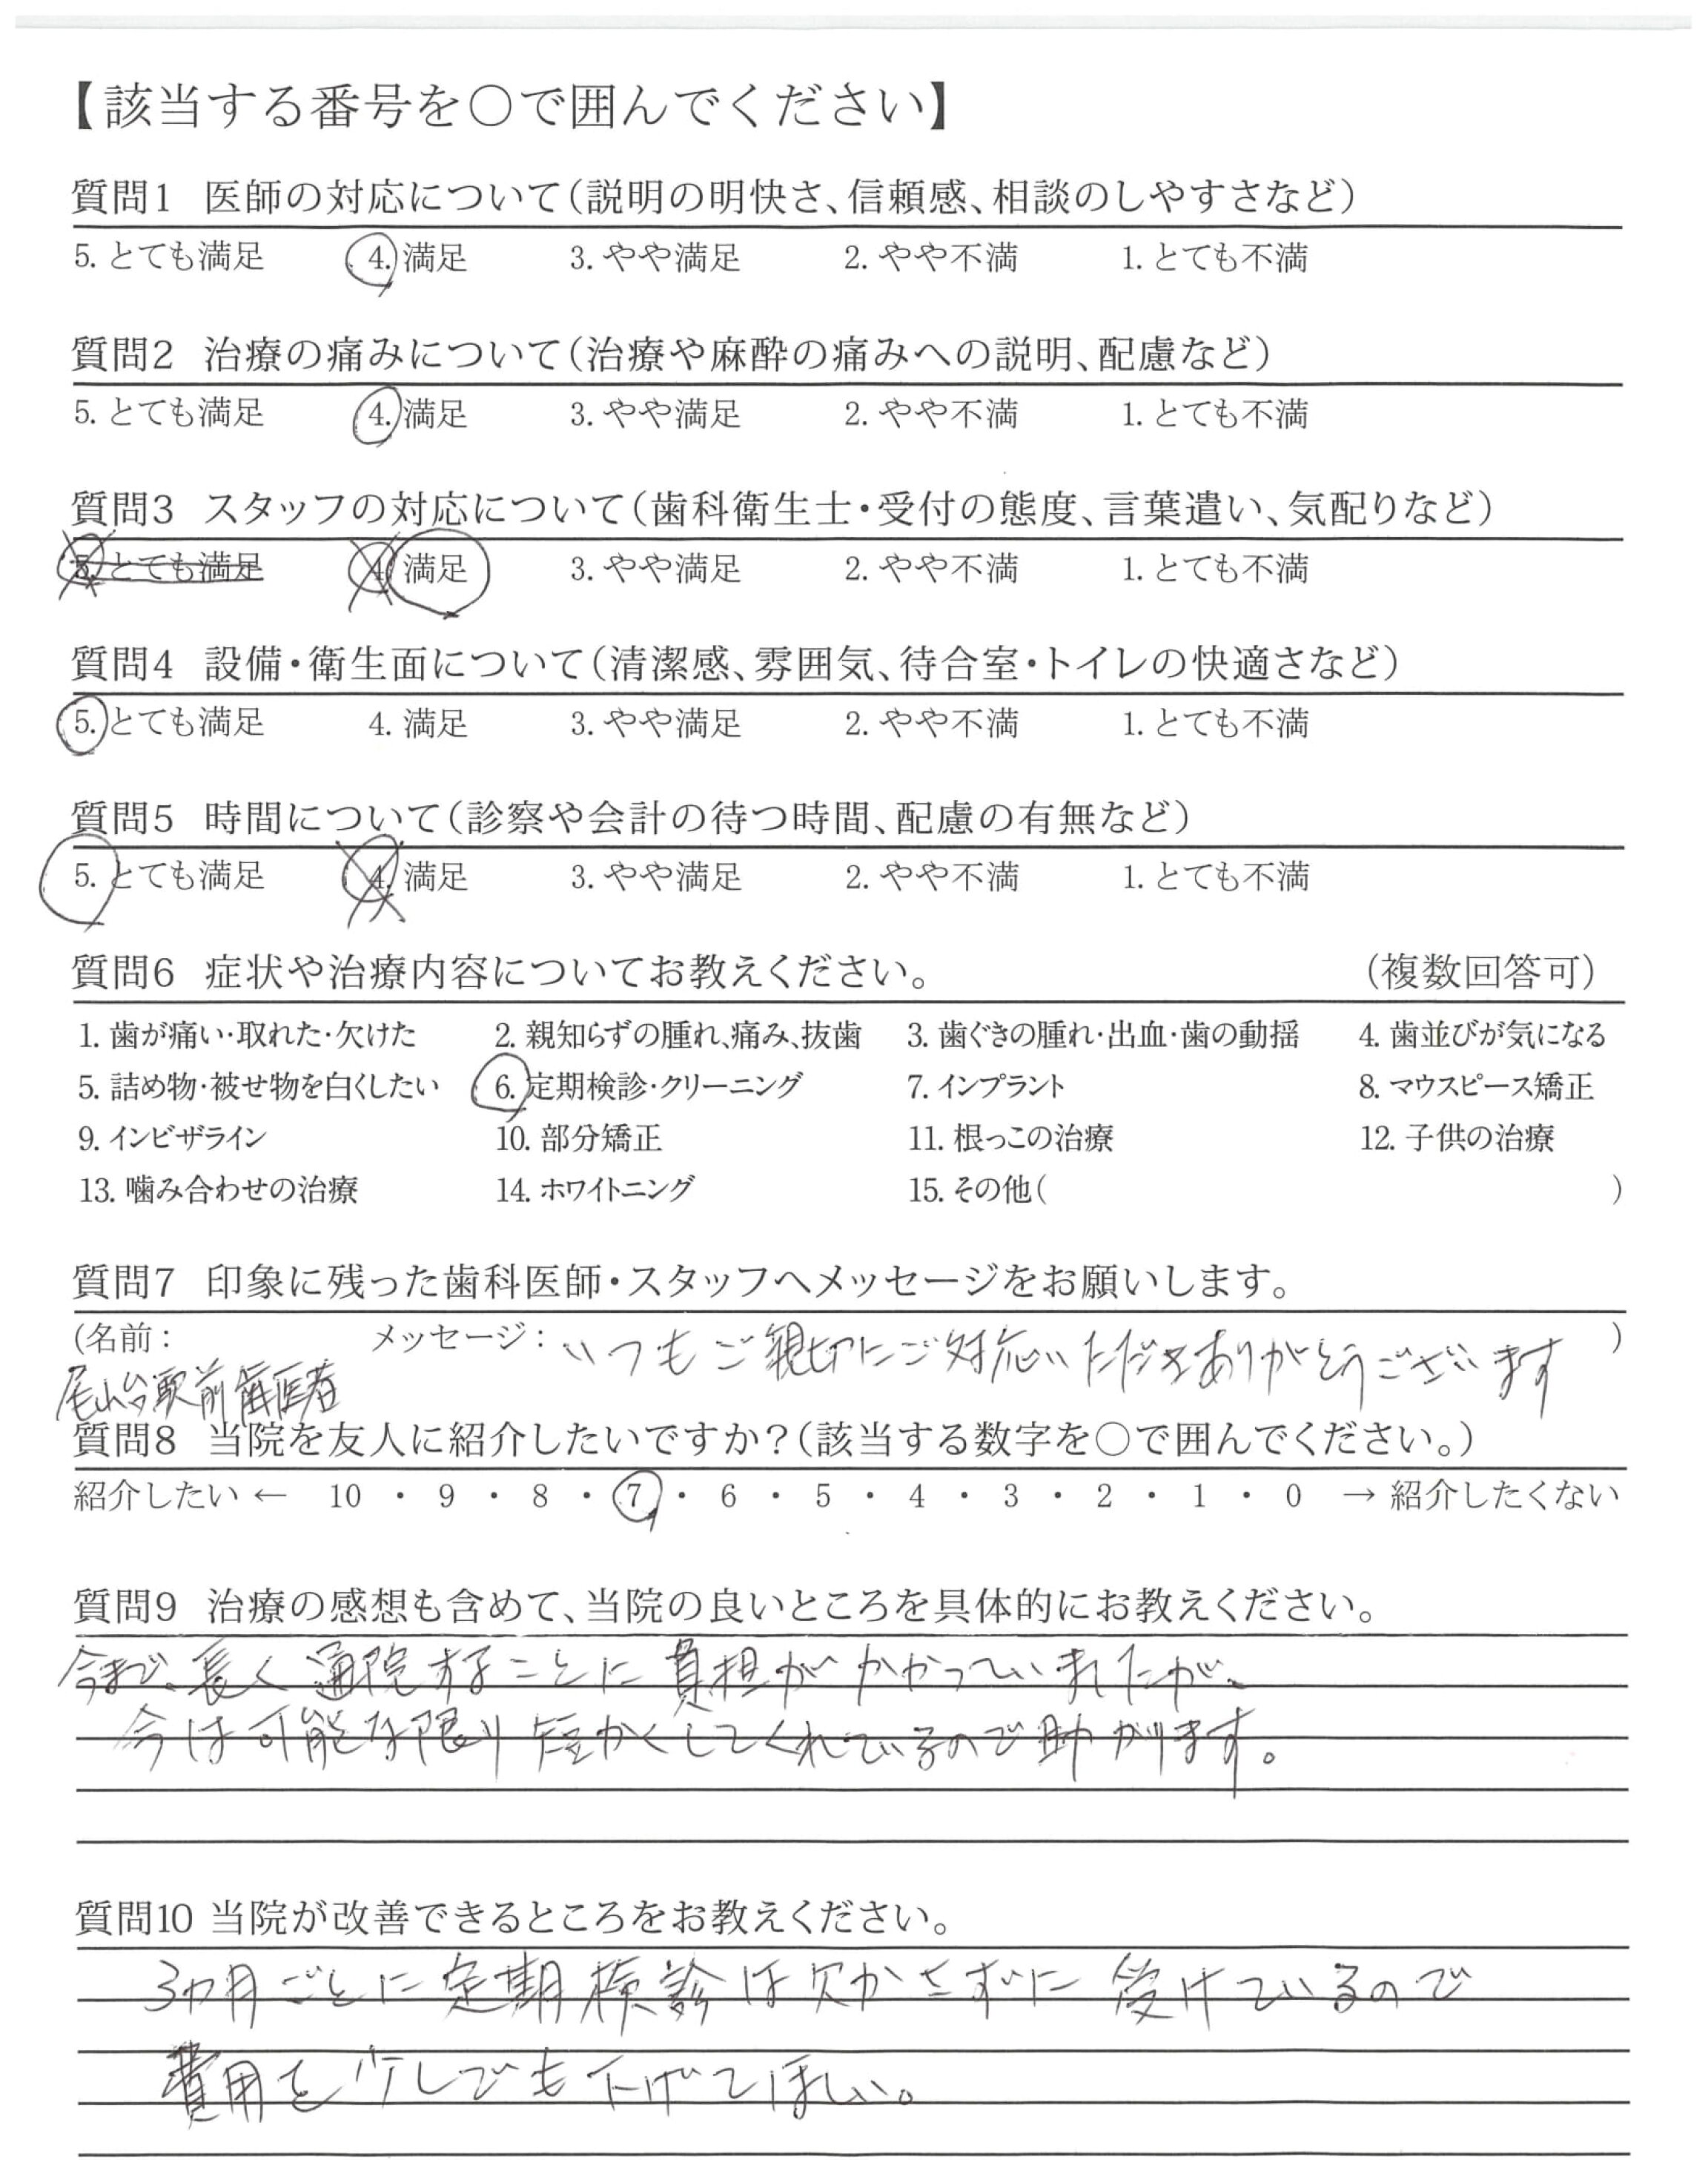 【該当する番号を○で囲んでください】
質問1 医師の対応について(説明の明快さ、信頼感、相談のしやすさなど)
5. とても満足 4. 満足 3. やや満足 2. やや不満 1. とても不満
質問2 治療の痛みについて(治療や麻酔の痛みへの説明、配慮など)
5. とても満足 4. 満足 3. やや満足 2. やや不満 1. とても不満
質問3 スタッフの対応について(歯科衛生士・受付の態度、言葉遣い、気配りなど)
5. とても満足 4. 満足 3. やや満足 2. やや不満 1. とても不満
質問4 設備・衛生面について(清潔感、雰囲気、待合室・トイレの快適さなど)
5. とても満足 4. 満足 3. やや満足 2. やや不満 1. とても不満
質問5 時間について(診察や会計の待つ時間、配慮の有無など)
5. とても満足 4. 満足 3. やや満足 2. やや不満 1. とても不満
質問6 症状や治療内容についてお教えください。 (複数回答可)
1. 歯が痛い・取れた・欠けた 2. 親知らずの腫れ、痛み、抜歯 3. 歯ぐきの腫れ・出血・歯の動揺 4. 歯並びが気になる
5. 詰め物・被せ物を白くしたい 6. 定期検診・クリーニング 7. インプラント 8. マウスピース矯正
9. インビザライン 10. 部分矯正 11. 根っこの治療 12. 子供の治療
13. 噛み合わせの治療 14. ホワイトニング 15. その他( )
質問7 印象に残った歯科医師・スタッフへメッセージをお願いします。
(名前: メッセージ: いつもご親切にご対応いただきありがとうございます )
尾山台駅前歯医者
質問8 当院を友人に紹介したいですか?(該当する数字を○で囲んでください。)
紹介したい ← 10 ・ 9 ・ 8 ・ 7 ・ 6 ・ 5 ・ 4 ・ 3 ・ 2 ・ 1 ・ 0 → 紹介したくない
質問9 治療の感想も含めて、当院の良いところを具体的にお教えください。
今まで、長く通院することに負担がかかっていましたが、
今は可能な限り短かくしてくれているので助かります。
質問10 当院が改善できるところをお教えください。
3カ月ごとに定期検診は欠かさずに受けているので
費用を少しでも下げてほしい。